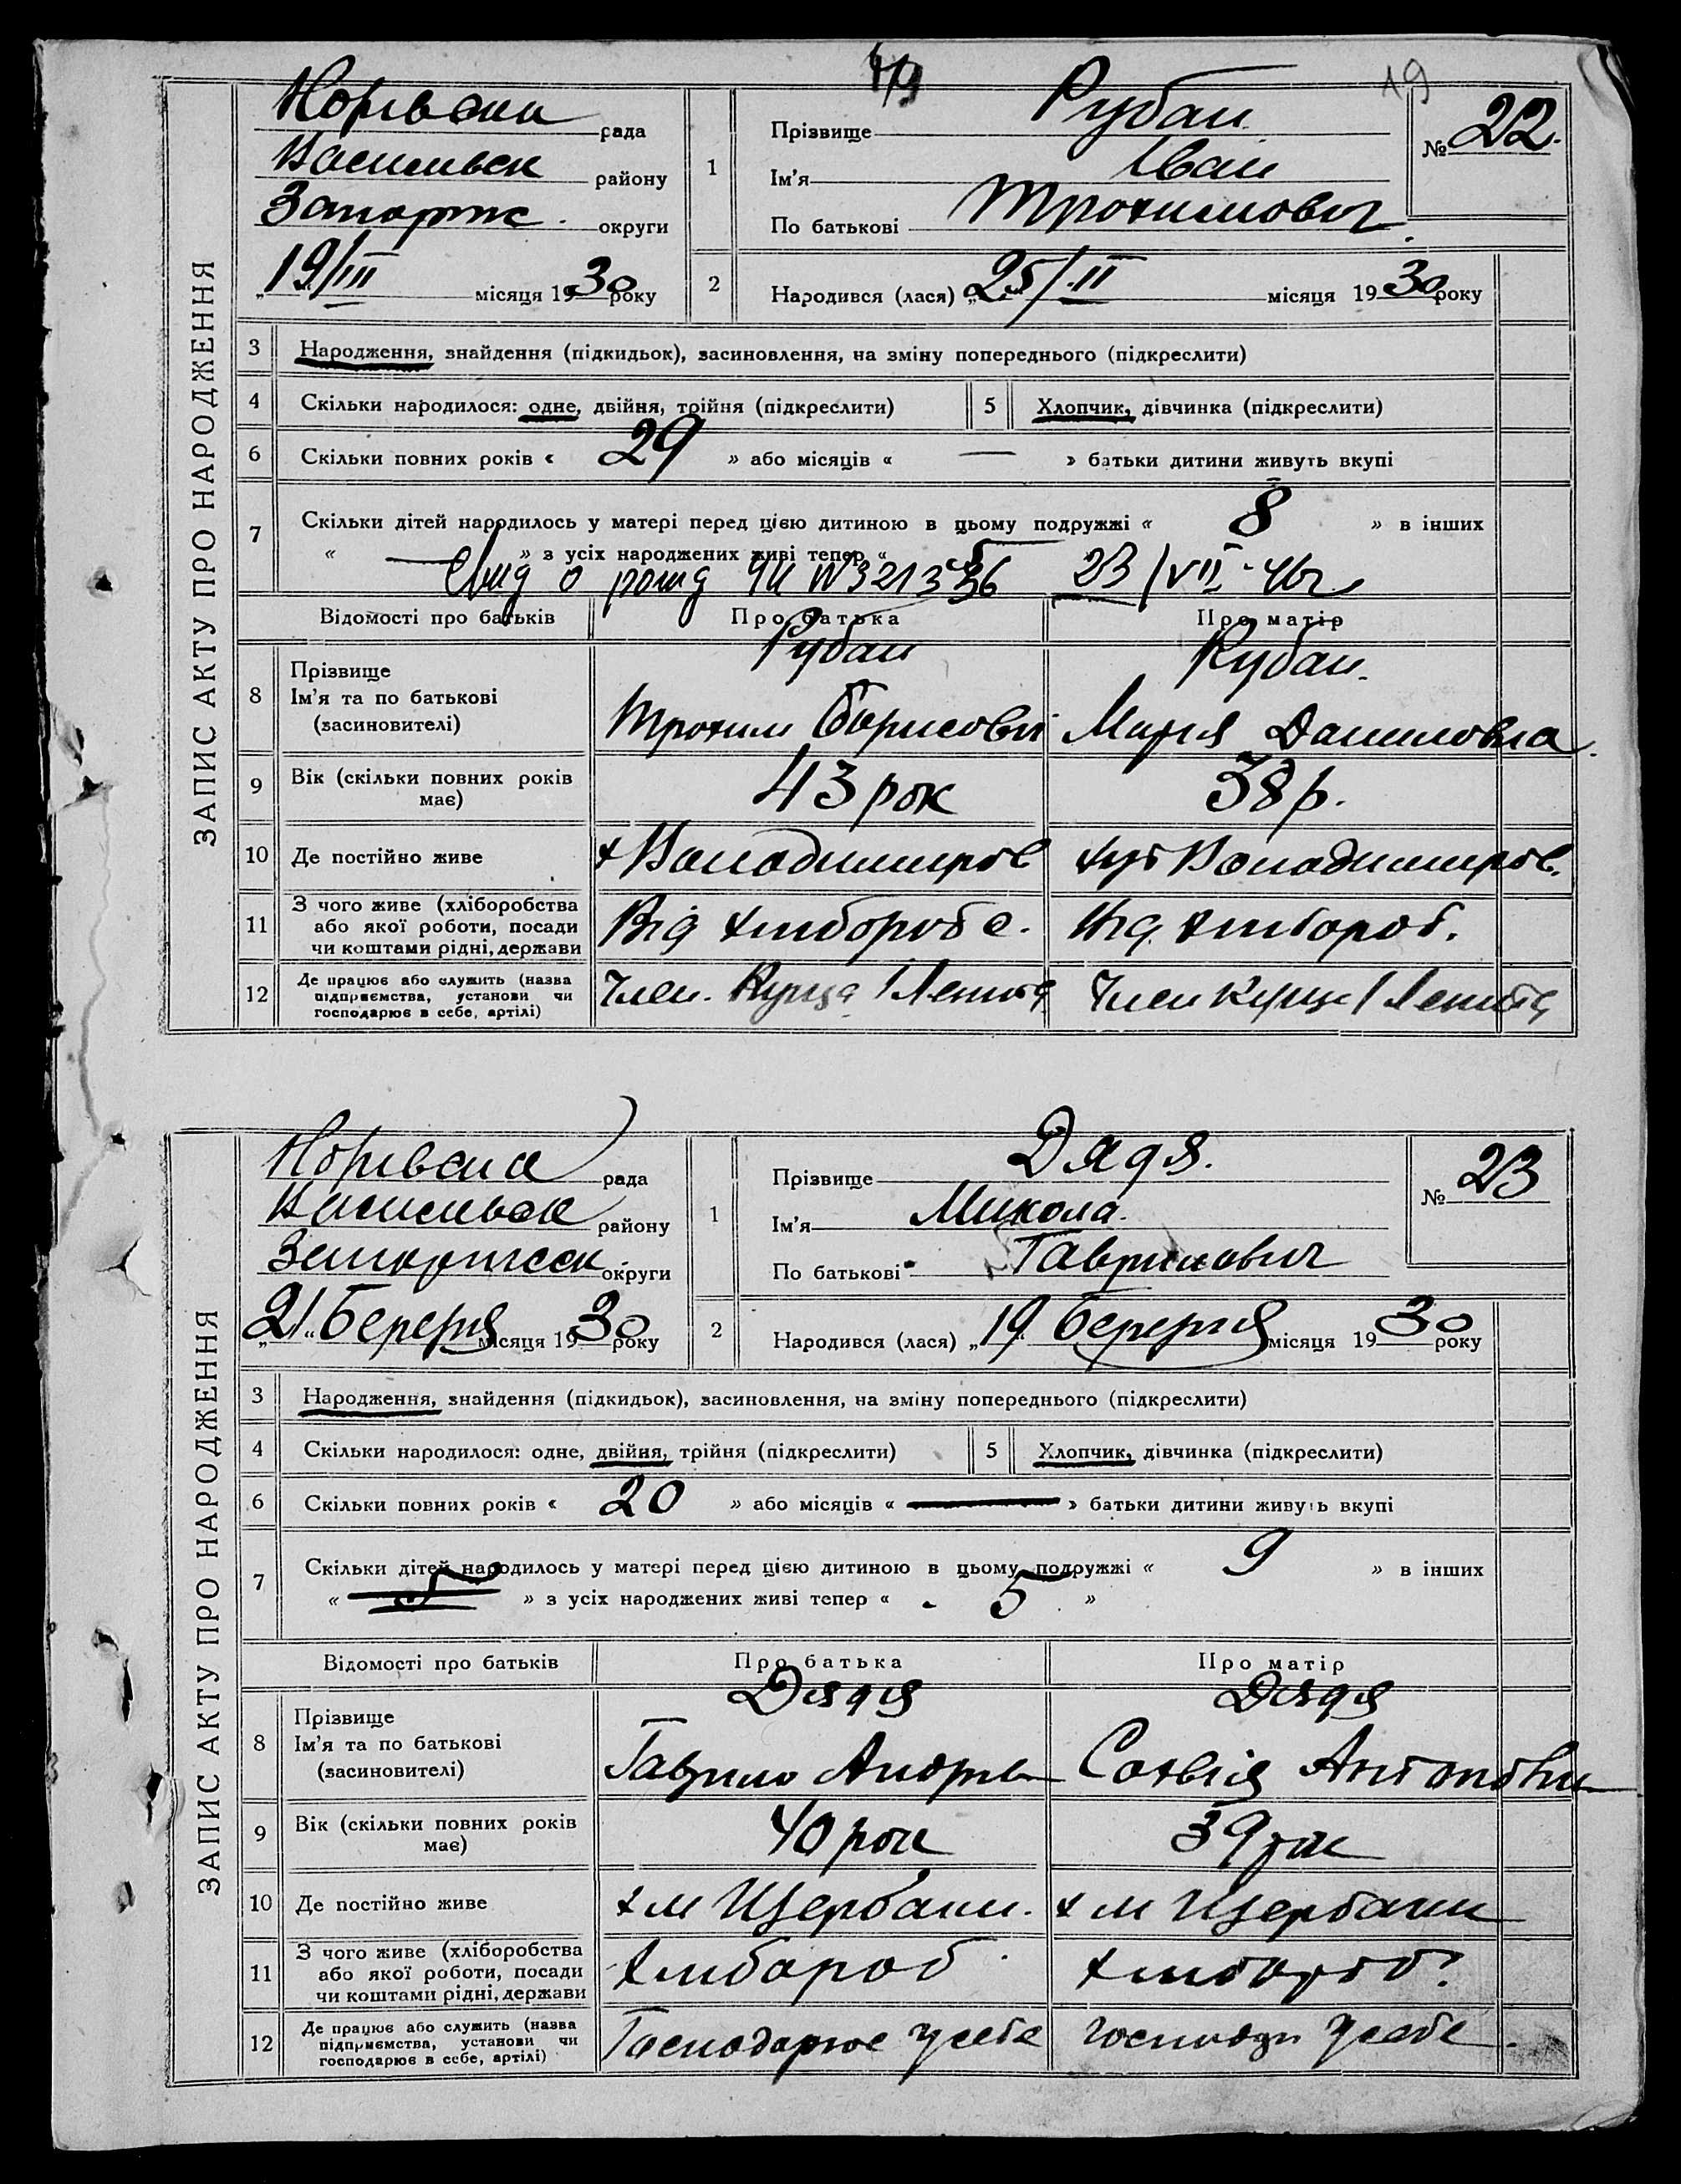 19
ЗАПИС АКТУ ПРО НАРОДЖЕННЯ
рада
Васильвск району
Запориж. округи
"19/III місяця 1930 року
1 Прізвище Рубан
Ім'я Іван
По батькові Трохимович
№ 22.
2 Народився (лася) „25/II місяця 1930 року
3 Народження, знайдення (підкидьок), засиновлення, на зміну попереднього (підкреслити)
4 Скільки народилося: одне, двійня, трійня (підкреслити) 5 Хлопчик, дівчинка (підкреслити)
6 Скільки повних років « 29 » або місяців « — » батьки дитини живуть вкупі
7 Скільки дітей народилось у матері перед цією дитиною в цьому подружжі « 8 » в інших
« — » з усіх народжених живі тепер « 5
23/VII-46г.
Відомості про батьків Про батька Про матір
8 Прізвище
Ім'я та по батькові
(засновителі)
Рубан
Трохим Борисович
Рубан.
Мария Даниловна
9 Вік (скільки повних років має) 43 рок 38 р.
10 Де постійно живе х Володимиров хут Володимиров.
11 З чого живе (хліборобства або якої роботи, посади чи коштами рідні, держави Від хлибороб Від хлибороб.
12 Де працює або служить (назва підприємства, установи чи господарює в себе, артілі) Член Леніна Член Леніна
ЗАПИС АКТУ ПРО НАРОДЖЕННЯ
рада
району
округи
„21" Березня місяця 1930 року
1 Прізвище Дядя.
Ім'я Микола.
По батькові Гаврилович
№ 23
2 Народився (лася) „19" березня місяця 1930 року
3 Народження, знайдення (підкидьок), засиновлення, на зміну попереднього (підкреслити)
4 Скільки народилося: одне, двійня, трійня (підкреслити) 5 Хлопчик, дівчинка (підкреслити)
6 Скільки повних років « 20 » або місяців « — » батьки дитини живуть вкупі
7 Скільки дітей народилось у матері перед цією дитиною в цьому подружжі « 9 » в інших
« » з усіх народжених живі тепер « 5 »
Відомості про батьків Про батька Про матір
8 Прізвище
Ім'я та по батькові
(засиновителі)
Дядя
Гаврило Андрів
Дядя
Софвія Антоновн
9 Вік (скільки повних років має) 40 рок 39 рок
10 Де постійно живе х М Щербани. х М Щербани
11 З чого живе (хліборобства або якої роботи, посади чи коштами рідні, держави Хлибороб Хлибороб.
12 Де працює або служить (назва підприємства, установи чи господарює в себе, артілі) Господарює у себе у себе